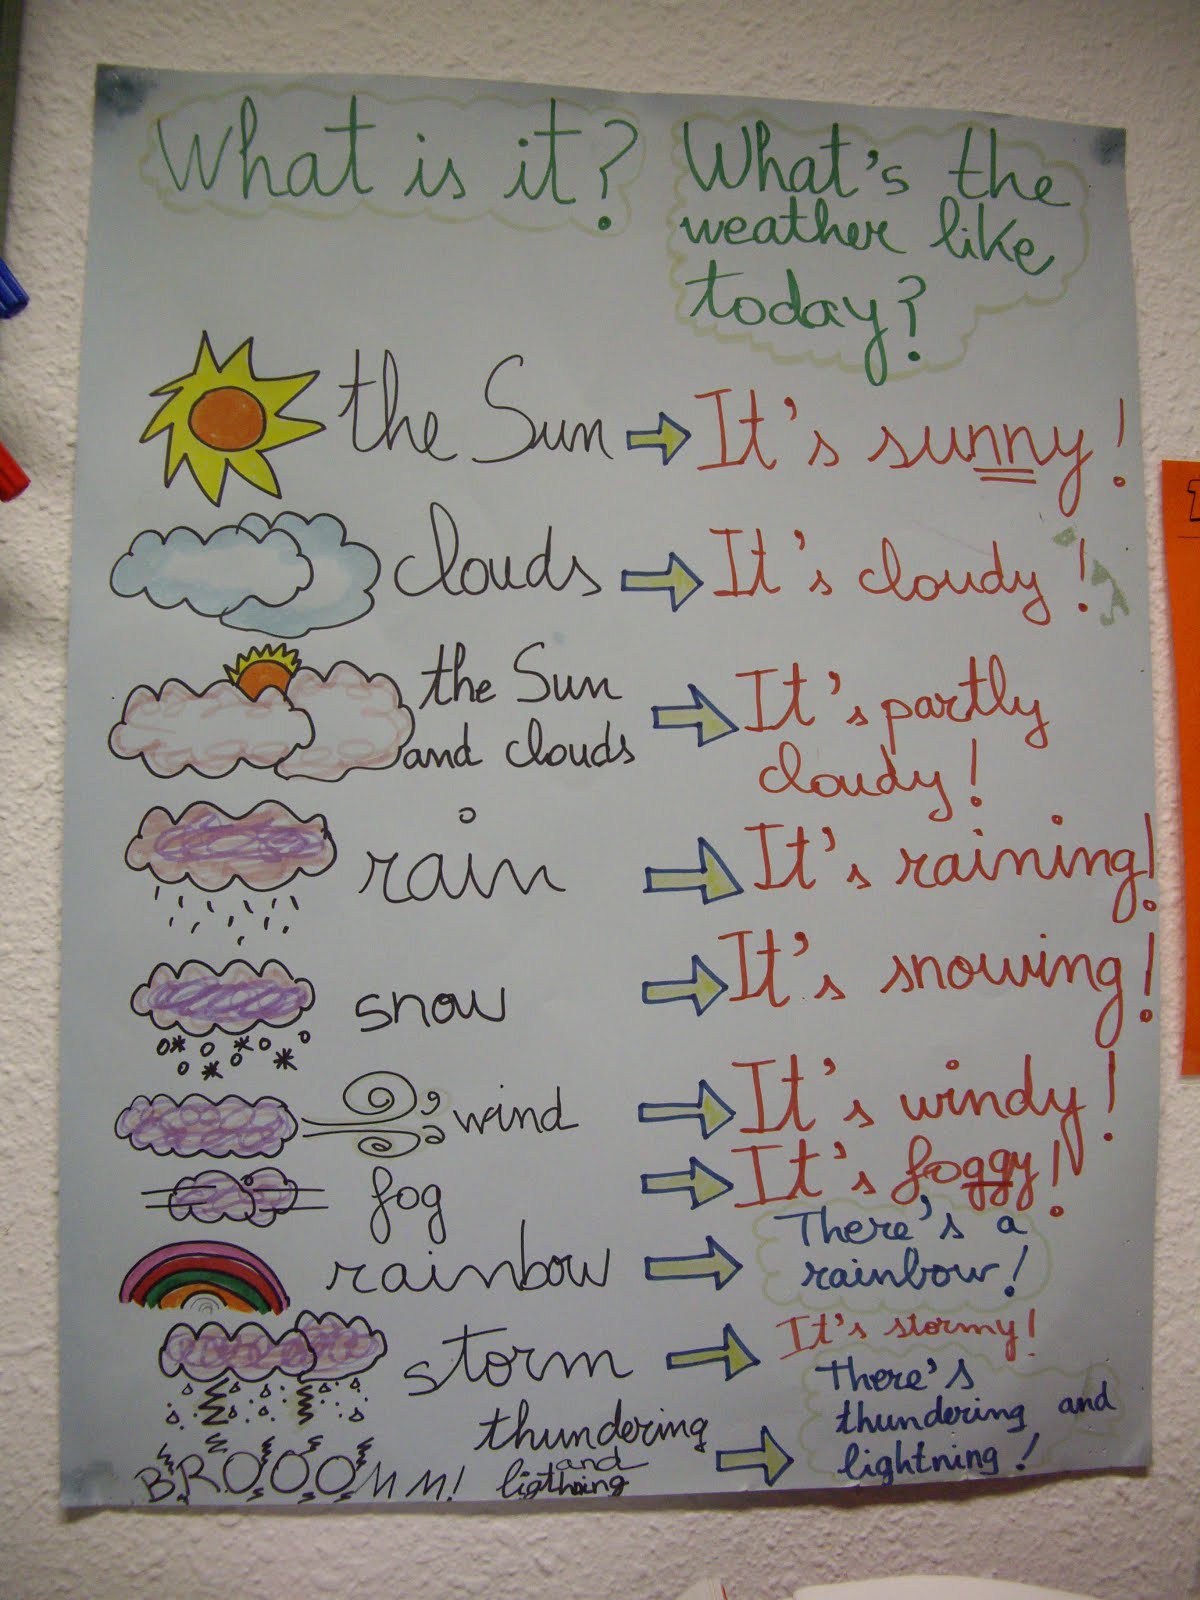 What is it?
What's the
weather like
today?
the Sun
It's sunny!
clouds
It's cloudy!
the Sun
and clouds
It's partly
cloudy!
rain
It's raining!
snow
It's snowing!
wind
It's windy!
fog
It's foggy!
rainbow
There's a
rainbow!
storm
It's stormy!
thundering
and
There's
thundering and
lightning!
BROOOMM!